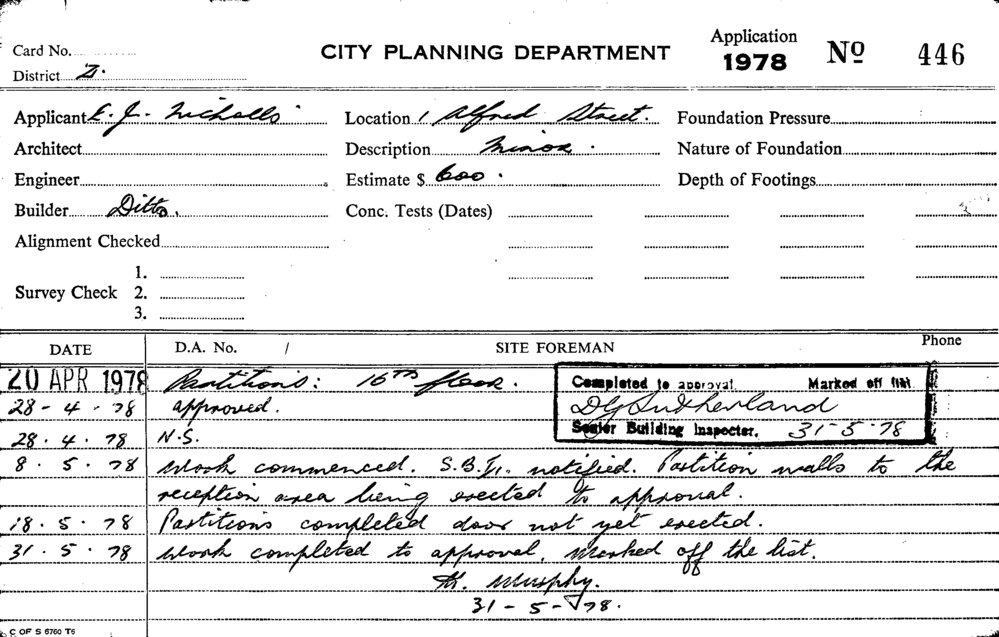 Card No.
CITY PLANNING DEPARTMENT
Application
1978
No 446
District 2.
Applicant E. J. Nicholls
Location 1 Alfred Street.
Foundation Pressure
Architect
Description Minor.
Nature of Foundation
Engineer
Estimate $ 600.
Depth of Footings
Builder Ditto.
Conc. Tests (Dates)
Alignment Checked
Survey Check
1.
2.
3.
DATE D.A. No. / SITE FOREMAN Phone
20 APR 1978 Partitions: 16TH floor.
Completed to approval Marked off list
DG Sutherland
Senior Building Inspector. 31-5-78
28-4-78 approved.
28.4.78 N.S.
8.5.78 Work commenced. S.B.I. notified. Partition walls to the
reception area being erected to approval.
18.5.78 Partitions completed door not yet erected.
31.5.78 Work completed to approval, Marked off the list.
Murphy.
31-5-78.
C OF S 6760 T6